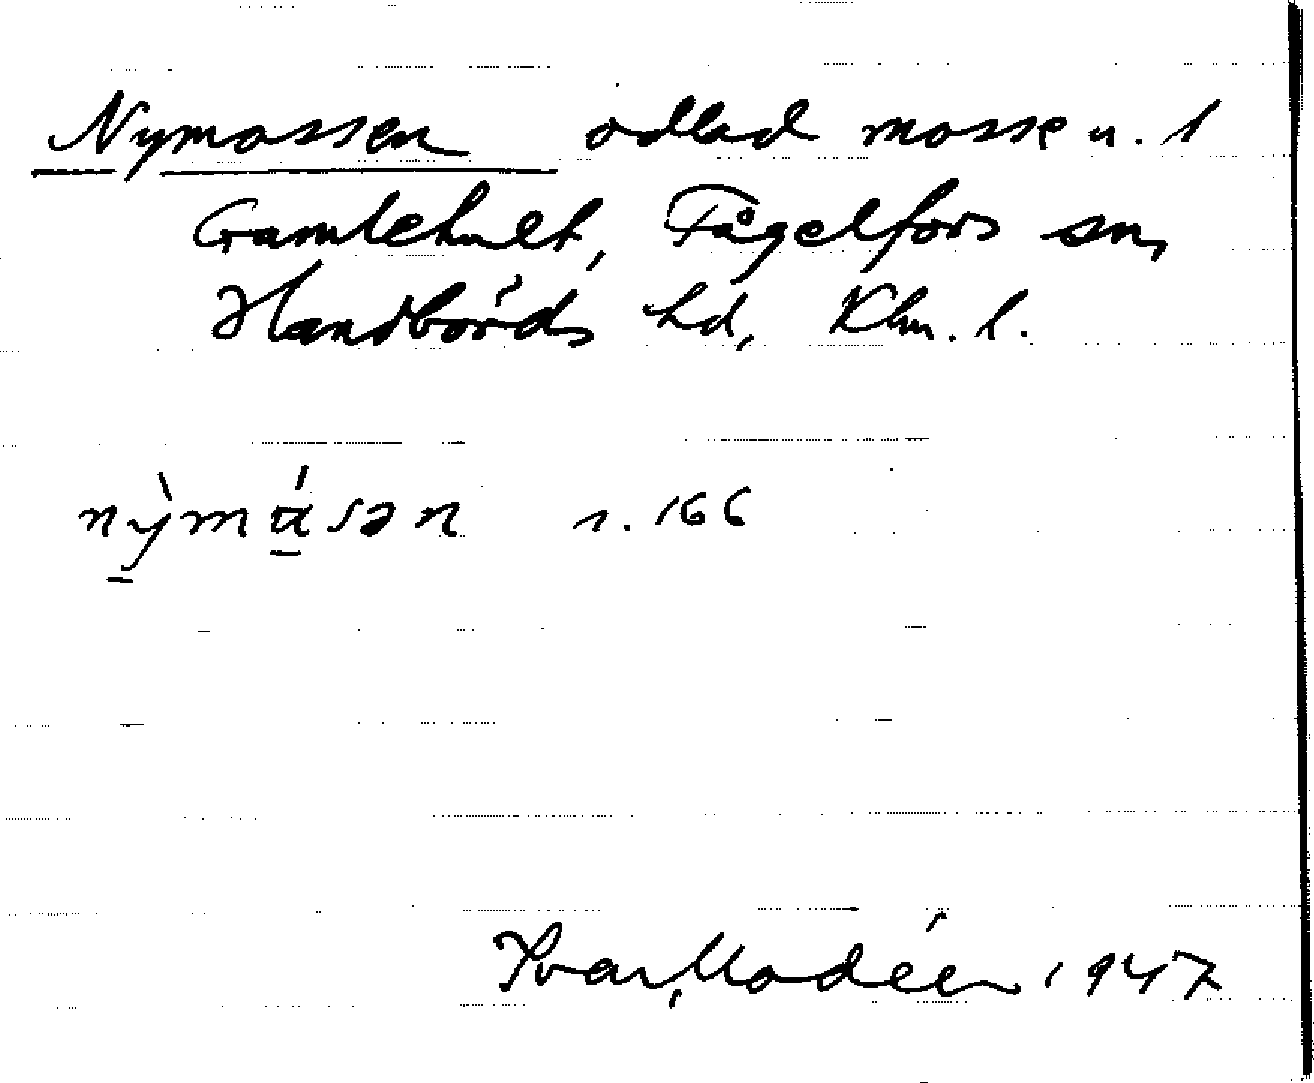 Nymossen odlad mosse u. 1
Gamlehult, Fågelfors sn,
Handbörds hd, Klm. l.
nỳmɑ́sən s. 166
Ivar Modéer 1947